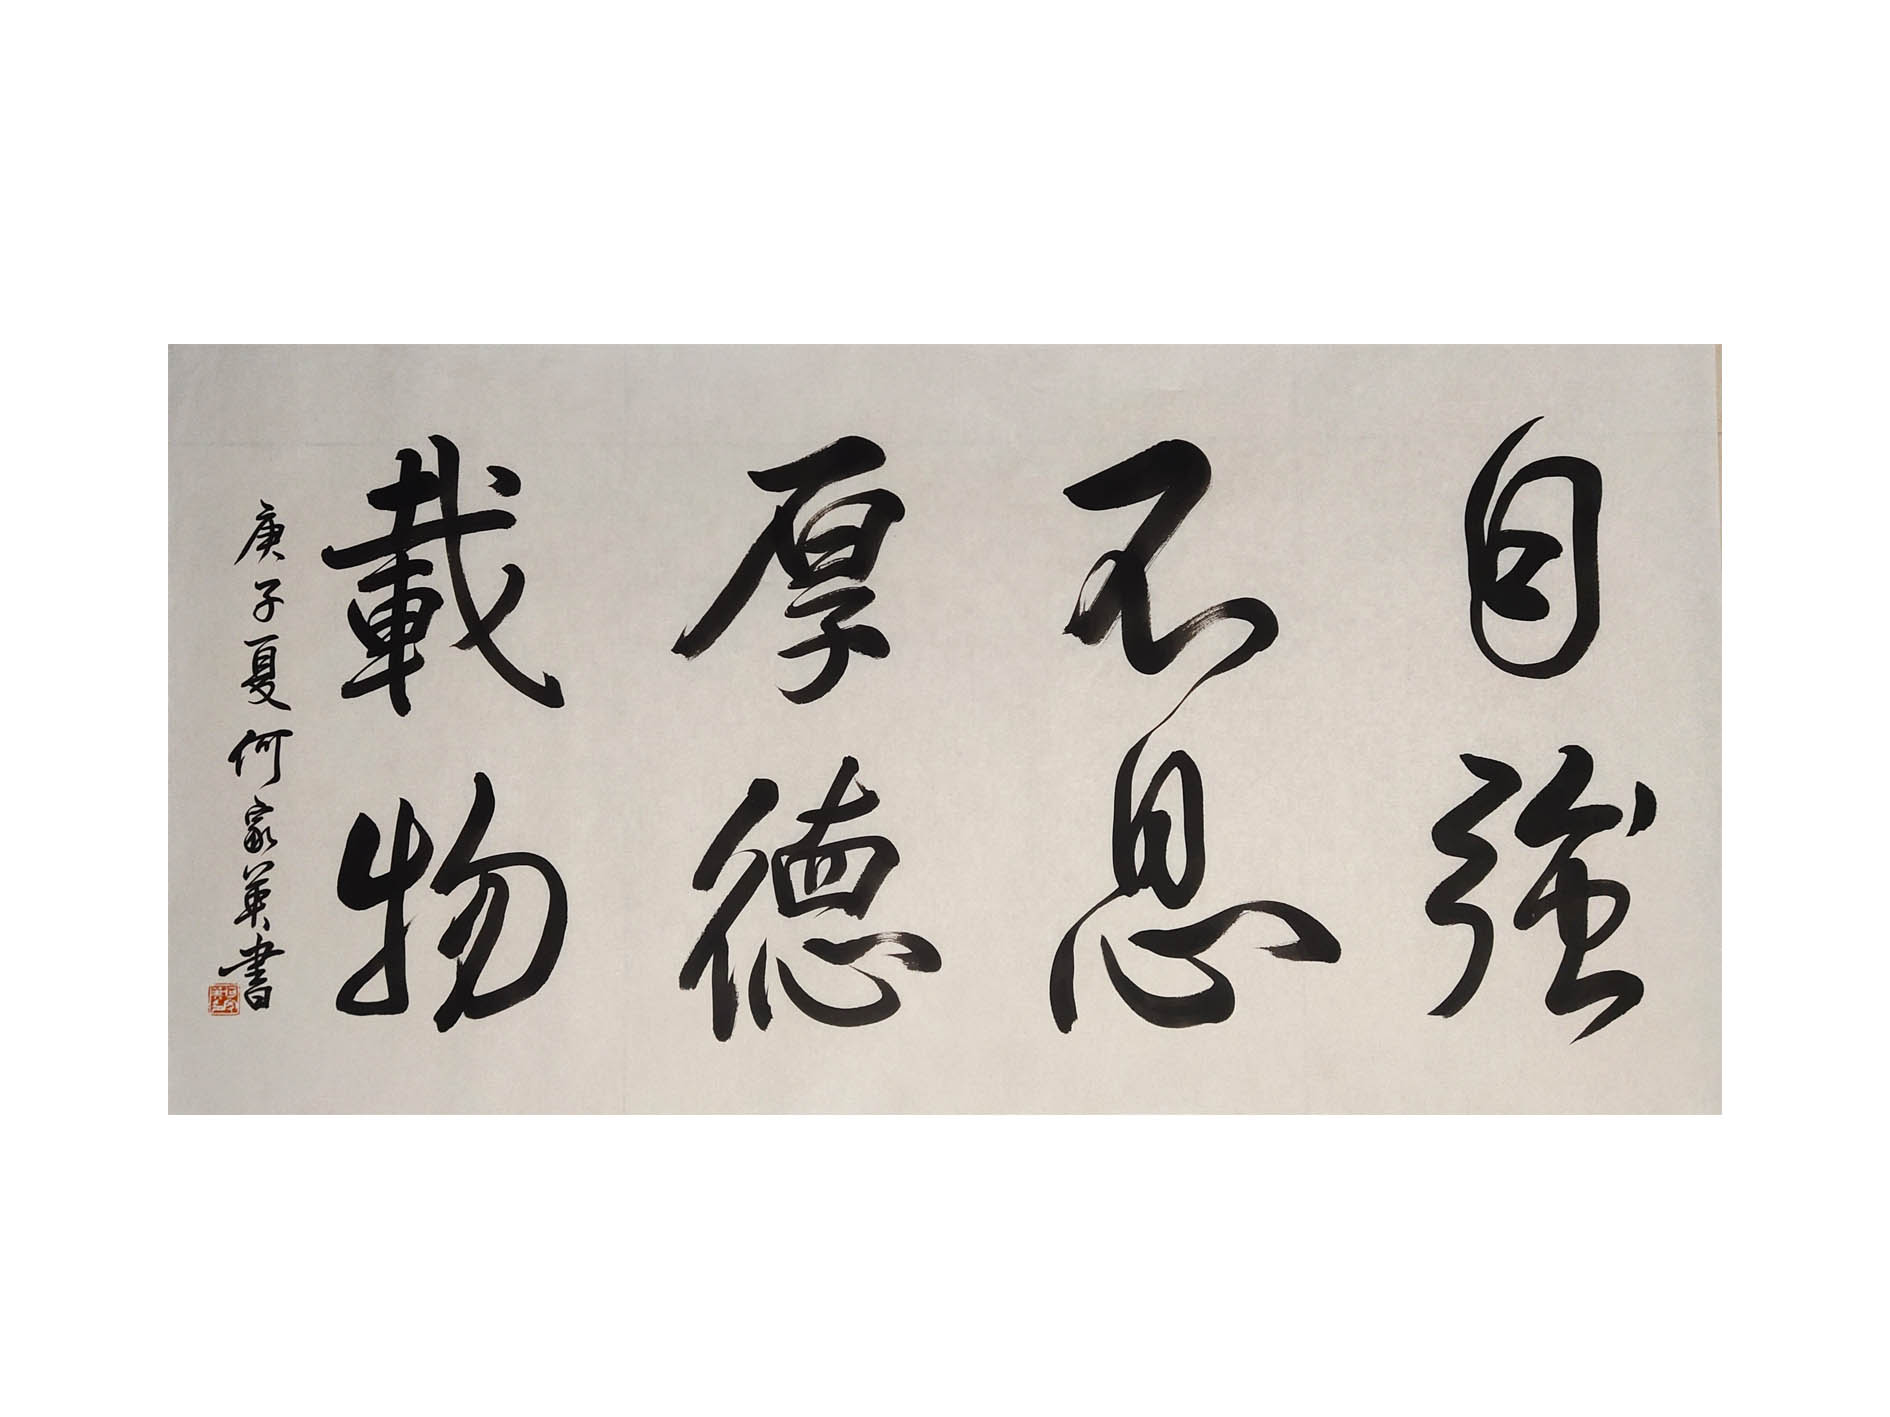 自強
不息
厚德
載物
庚子夏何家英書